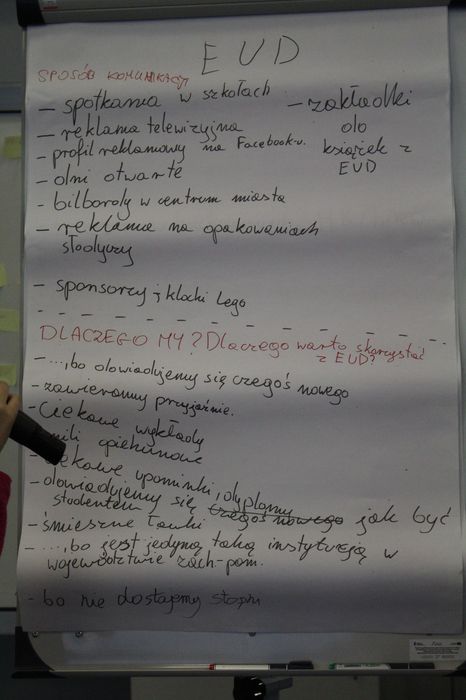 EUD
SPOSÓB KOMUNIKACJI
- spotkania w szkołach
- reklama telewizyjna
- profil reklamowy na Facebook-u.
- dni otwarte
- bilbordy w centrum miasta
- reklama na opakowaniach
słodyczy
- sponsorzy; klocki Lego
- zakładki
do
książek z
EUD
DLACZEGO MY? Dlaczego warto skorzystać
z EUD?
- ..., bo dowiadujemy się czegoś nowego
- zawieramy przyjaźnie.
- Ciekawe wykłady
opiekunowie
upominki, dyplomy
- dowiadujemy się czegoś nowego jak być
studentem
- śmieszne ławki
- ..., bo jest jedyną taką instytucją w
województwie zach-pom.
- bo nie dostajemy stopni